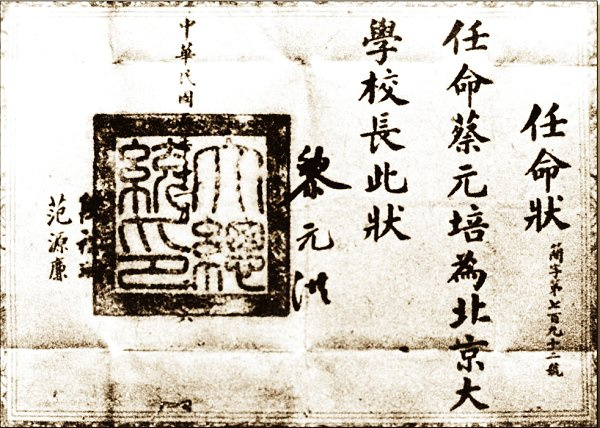 任命狀
簡字第七百九十二號
任命蔡元培為北京大
學校長此狀
黎元洪
大總統印
中華民國
六
范源廉